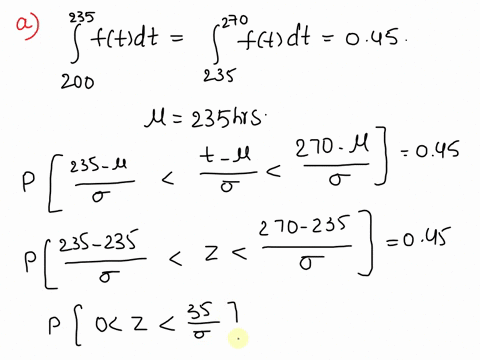 a) ∫₂₀₀²³⁵ f(t)dt = ∫₂₃₅²⁷⁰ f(t)dt = 0.45.
μ = 235hrs.
P[ (235-μ)/σ < (t-μ)/σ < (270-μ)/σ ] = 0.45
P[ (235-235)/σ < Z < (270-235)/σ ] = 0.45
P[ 0< Z < 35/σ ]